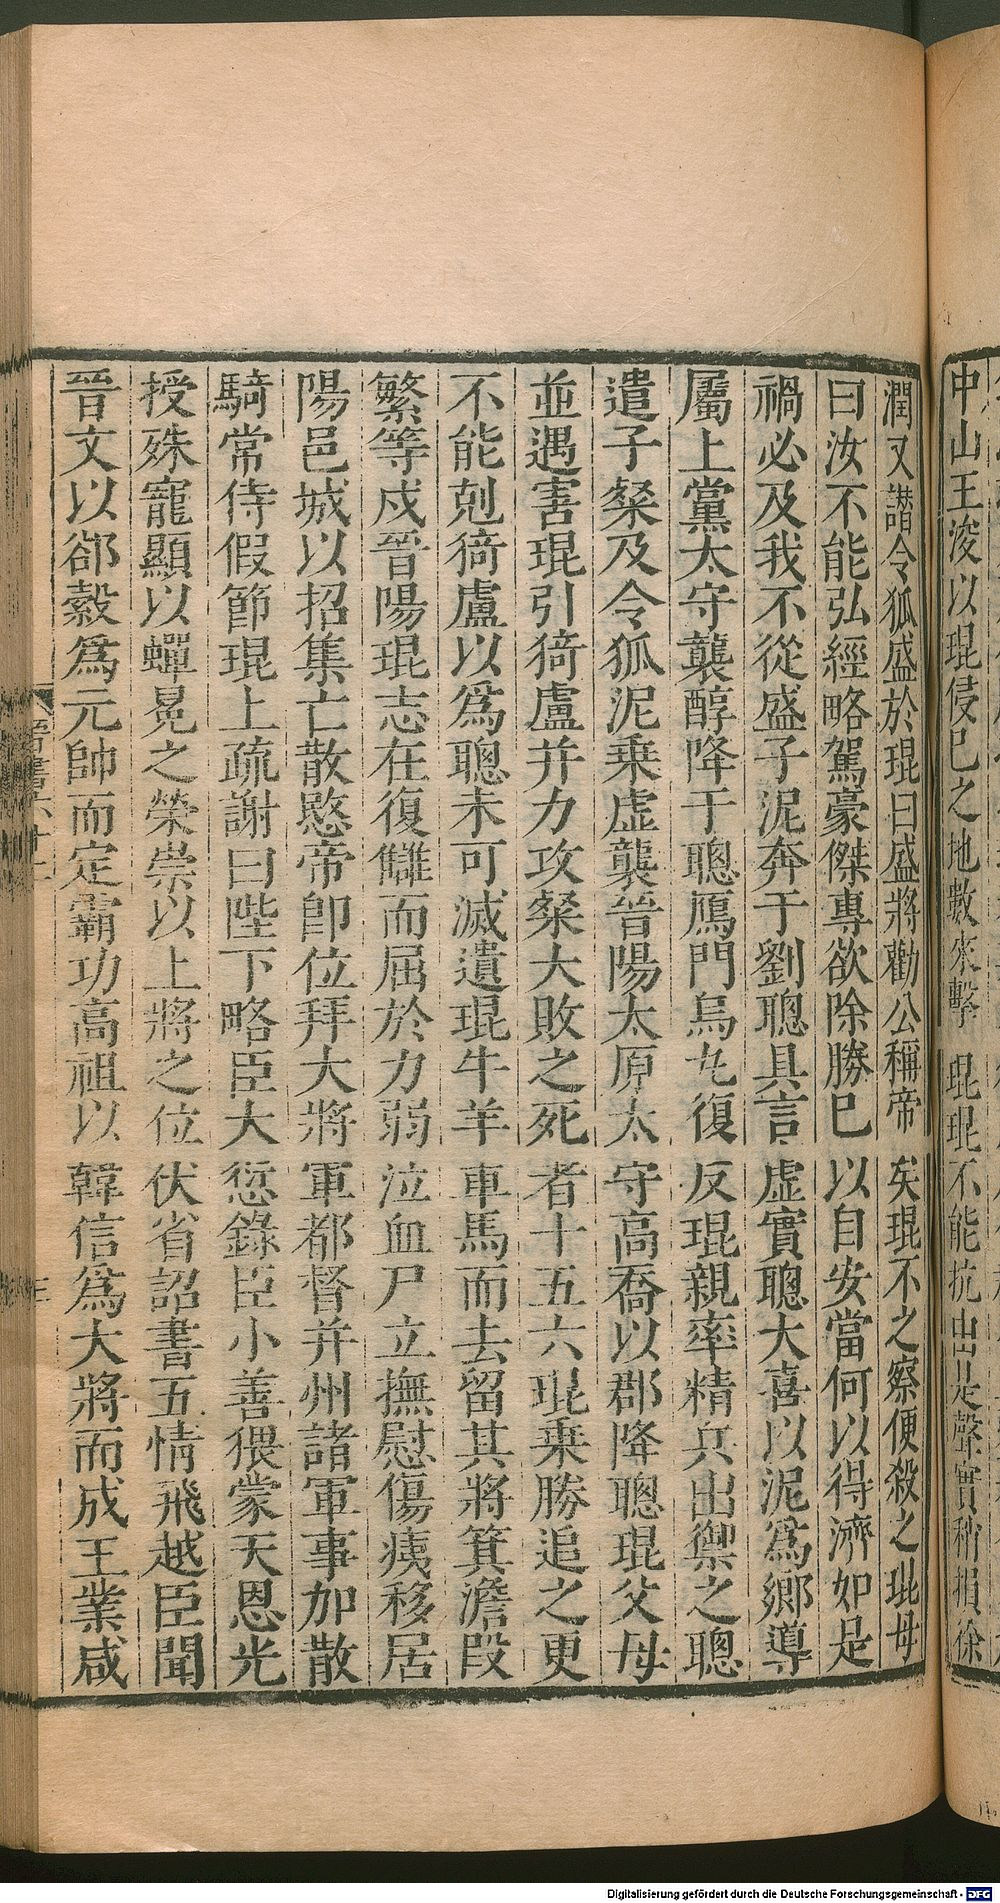 中山王浚以琨侵己之地數來擊琨琨不能抗由是聲實稍損徐
潤又譖令狐盛於琨曰盛將勸公稱帝矣琨不之察便殺之琨母
曰汝不能弘經略駕豪傑專欲除勝己以自安當何以得濟如是
禍必及我不從盛子泥奔于劉聰具言虛實聰大喜以泥為鄉導
屬上黨太守襲醇降于聰鴈門烏丸復反琨親率精兵出禦之聰
遣子粲及令狐泥乗虛襲晉陽太原太守高喬以郡降聰琨父母
並遇害琨引猗盧并力攻粲大敗之死者十五六琨乗勝追之更
不能剋猗盧以爲聰未可滅遺琨牛羊車馬而去留其將箕澹段
繁等戍晉陽琨志在復讎而屈於力弱泣血尸立撫慰傷痍移居
陽邑城以招集亡散愍帝卽位拜大將軍都督并州諸軍事加散
騎常侍假節琨上疏謝曰陛下略臣大愆錄臣小善猥蒙天恩光
授殊寵顯以蟬冕之榮崇以上將之位伏省詔書五情飛越臣聞
晉文以郤縠爲元帥而定霸功高祖以韓信爲大將而成王業咸
晉書六十二
三
Digitalisierung gefördert durch die Deutsche Forschungsgemeinschaft - DFG